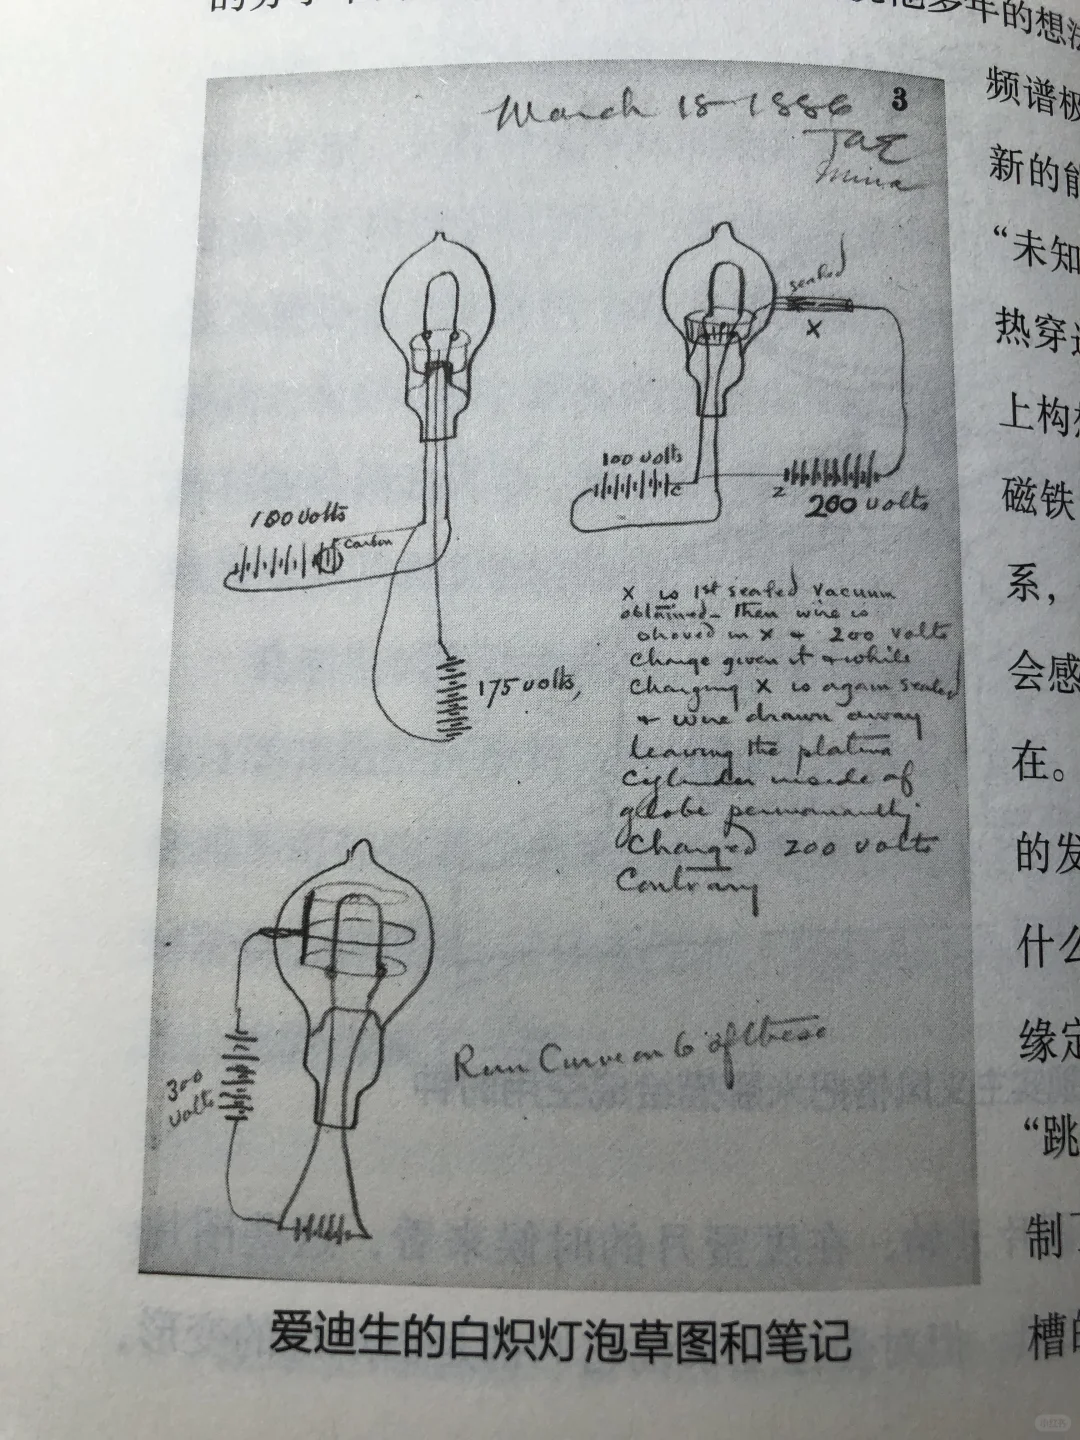 他多年的想法
March 18-1886 3
TAE
Mina
频谱极
新的能
“未知
热穿过
上构想
磁铁
系，
会感
在。
的发
什么
缘定
“跳
制了
槽的
sealed
X
100 volts
c
z
200 volts
100 volts
Carbon
175 volts,
X is 1st sealed vacuum
obtained - then wire is
shoved in X & 200 volts
Charge given it & while
charging X is again sealed
& wire drawn away
leaving the platina
Cylinder inside of
globe permanently
Charged 200 volts
Contrary
300
volts
Run Curve on 6 of these
爱迪生的白炽灯泡草图和笔记
小红书